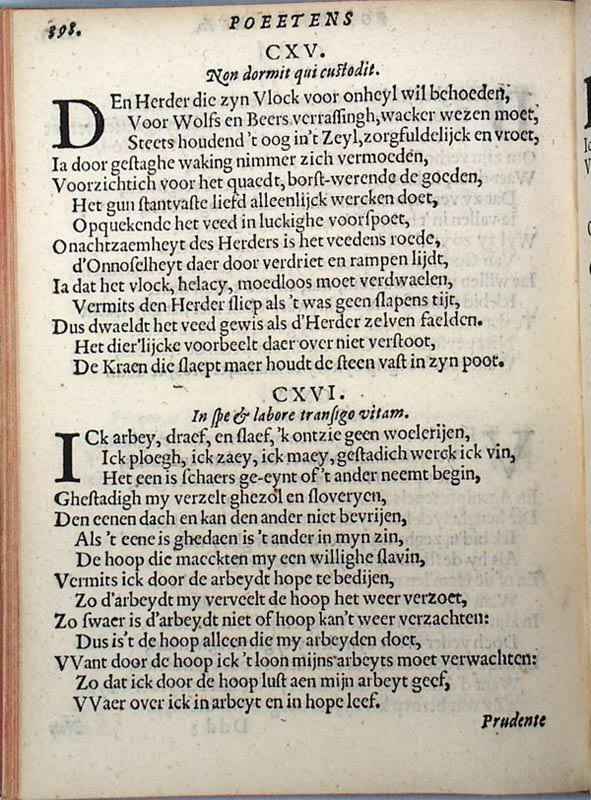 398.
POEETENS
CXV.
Non dormit qui custodit.
DEn Herder die zyn Vlock voor onheyl wil behoeden,
Voor Wolfs en Beers verrassingh, wacker wezen moet,
Steets houdend 't oog in't Zeyl, zorgfuldelijck en vroet,
Ia door gestaghe waking nimmer zich vermoeden,
Voorzichtich voor het quaedt, borst-werende de goeden,
Het gun stantvaste liefd alleenlijck wercken doet,
Opquekende het veed in luckighe voorspoet,
Onachtzaemheyt des Herders is het veedens roede,
d'Onnoselheyt daer door verdriet en rampen lijdt,
Ia dat het vlock, helacy, moedloos moet verdwaelen,
Vermits den Herder sliep als 't was geen slapens tijt,
Dus dwaeldt het veed gewis als d'Herder zelven faelden.
Het dier'lijcke voorbeelt daer over niet verstoot,
De Kraen die slaept maer houdt de steen vast in zyn poot.
CXVI.
In spe & labore transigo vitam.
ICk arbey, draef, en slaef, 'k ontzie geen woelerijen,
Ick ploegh, ick zaey, ick maey, gestadich werck ick vin,
Het een is schaers ge-eynt of 't ander neemt begin,
Ghestadigh my verzelt ghezol en sloveryen,
Den eenen dach en kan den ander niet bevrijen,
Als 't eene is ghedaen is 't ander in myn zin,
De hoop die maeckten my een willighe slavin,
Vermits ick door de arbeydt hope te bedijen,
Zo d'arbeydt my verveelt de hoop het weer verzoet,
Zo swaer is d'arbeydt niet of hoop kan't weer verzachten:
Dus is't de hoop alleen die my arbeyden doet,
VVant door de hoop ick 't loon mijns arbeyts moet verwachten:
Zo dat ick door de hoop lust aen mijn arbeyt geef,
VVaer over ick in arbeyt en in hope leef.
Prudente